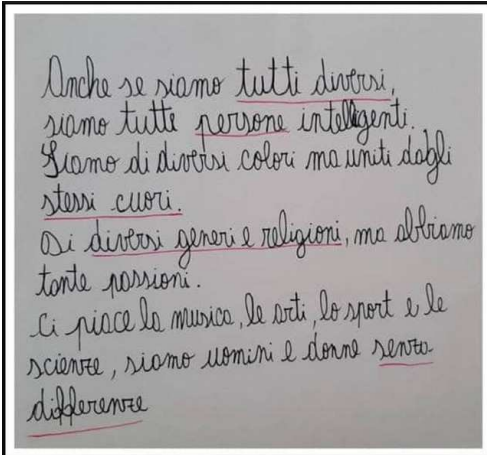 Anche se siamo tutti diversi,
siamo tutte persone intelligenti.
Siamo di diversi colori ma uniti dagli
stessi cuori.
Di diversi generi e religioni, ma abbiamo
tante passioni.
Ci piace la musica, le arti, lo sport e le
scienze, siamo uomini e donne senza
differenze